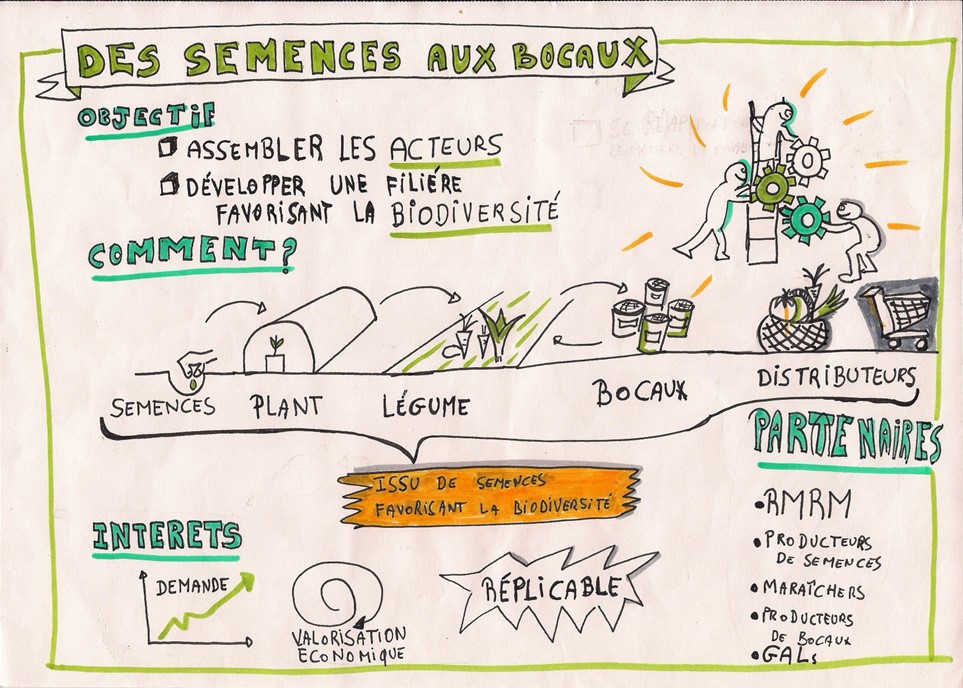 DES SEMENCES AUX BOCAUX
OBJECTIF
ASSEMBLER LES ACTEURS
DÉVELOPPER UNE FILIÉRE
FAVORISANT LA BIODIVERSITÉ
COMMENT?
SEMENCES
PLANT
LÉGUME
BOCAUX
DISTRIBUTEURS
ISSU DE SEMENCES
FAVORISANT LA BIODIVERSITÉ
PARTENAIRES
•RMRM
•PRODUCTEURS
DE SEMENCES
•MARAÎCHERS
•PRODUCTEURS
DE BOCAUX
•GALs
INTERETS
DEMANDE
VALORISATION
ECONOMIQUE
RÉPLICABLE